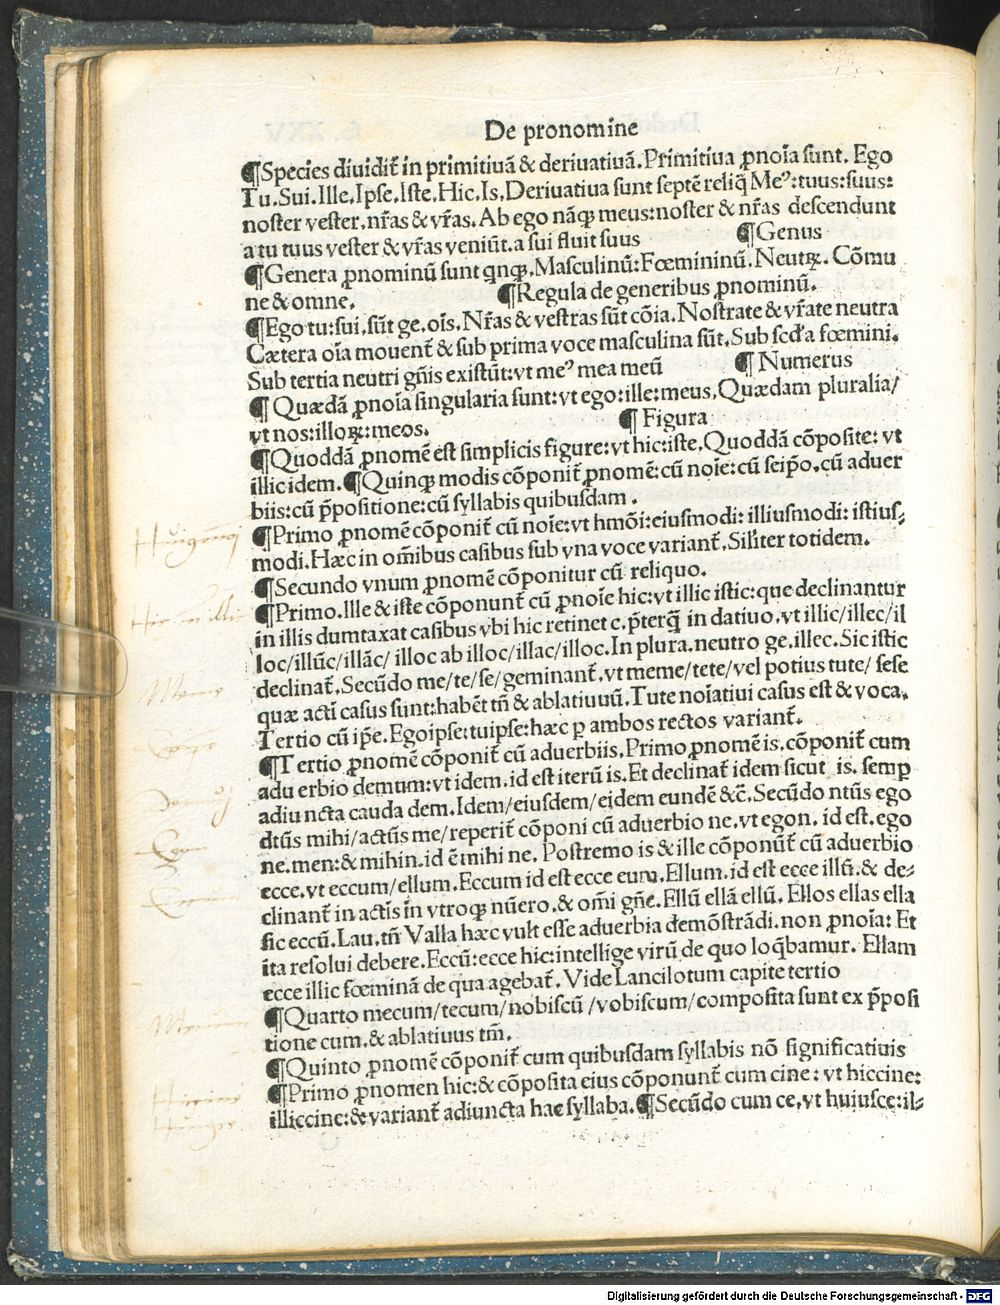 De pronomine
¶Species diuidit̃ in primitiuã & deriuatiuã.Primitiua ꝓnoĩa sunt. Ego
Tu.Sui.Ille.Ipse.Iste.Hic.Is.Deriuatiua sunt septẽ reliq̃ Meꝰ:tuus:suus:
noster vester.nr̃as & vr̃as. Ab ego nãqꝫ meus:noster & nr̃as descendunt
a tu tuus vester & vr̃as veniũt.a sui fluit suus ¶Genus
¶Genera ꝓnominũ sunt qnqꝫ.Masculinũ:Fœmininũ.Neutꝝ. Cõmu
ne & omne. ¶Regula de generibus ꝓnominũ.
¶Ego tu:sui,sũt ge.oĩs.Nr̃as & vestras sũt cõia.Nostrate & vr̃ate neutra
Cætera oĩa mouent̃ & sub prima voce masculina sũt.Sub scd̃a fœmini.
Sub tertia neutri gñis existũt:vt meꝰ mea meũ ¶ Numerus
¶ Quædã ꝓnoĩa singularia sunt:vt ego:ille:meus.Quædam pluralia/
vt nos:illoꝝ:meos. ¶ Figura
¶Quoddã ꝓnomẽ est simplicis figure:vt hic:iste.Quoddã cõposite: vt
illic idem.¶Quinqꝫ modis cõponit̃ ꝓnomẽ:cũ noĩe:cũ seip̃o.cũ aduer
biis:cũ p̃positione:cũ syllabis quibusdam .
¶Primo ꝓnomẽ cõponit̃ cũ noie:vt hmõi:eiusmodi: illiusmodi: istius⸗
modi.Hæc in om̃ibus casibus sub vna voce variant̃.Siliter totidem.
¶Secundo vnum ꝓnomẽ cõponitur cũ reliquo.
¶Primo.Ille & iste cõponunt̃ cũ ꝓnoĩe hic:vt illic istic:que declinantur
in illis dumtaxat casibus vbi hic retinet c.p̃terq̃ in datiuo.vt illic/illec/il
loc/illũc/illãc/ illoc ab illoc/illac/illoc.In plura.neutro ge.illec.Sic istic
declinat̃.Secũdo me/te/se/geminant̃.vt meme/tete/vel potius tute/ sese
quæ acti casus sunt:habẽt tñ & ablatiuuũ.Tute noĩatiui casus est & voca.
Tertio cũ ip̃e.Egoipse:tuipse:hæc ꝑ ambos rectos variant̃.
¶Tertio ꝓnomẽ cõponit̃ cũ aduerbiis.Primo ꝓnomẽ is.cõponit̃ cum
adu erbio demum:vt idem.id est iterũ is.Et declinat̃ idem sicut is. semꝑ
adiuncta cauda dem.Idem/eiusdem/eidem eundẽ &c̃.Secũdo ntũs ego
dtũs mihi/actũs me/reperit̃ cõponi cũ aduerbio ne.vt egon. id est.ego
ne.men:& mihin.id ẽ mihi ne. Postremo is & ille cõponũt̃ cũ aduerbio
ecce.vt eccum/ellum.Eccum id est ecce eum.Ellum.id est ecce illũ.& de⸗
clinant̃ in actis in vtroqꝫ nũero.& om̃i gñe.Ellũ ellã ellũ. Ellos ellas ella
sic eccũ.Lau.tñ Valla hæc vult esse aduerbia demõstrãdi.non ꝓnoĩa: Et
ita resolui debere.Eccũ:ecce hic:intellige virũ de quo loqbamur. Ellam
ecce illic fœminã de qua agebat̃. Vide Lancilotum capite tertio
¶Quarto mecum/tecum/nobiscũ /vobiscum/composita sunt ex p̃posi
tione cum.& ablatiuus tm̃.
¶Quinto ꝓnomẽ cõponit̃ cum quibusdam syllabis nõ significatiuis
¶Primo ꝓnomen hic:& cõposita eius cõponunt̃ cum cine: vt hiccine:
illiccine:& variant̃ adiuncta hac syllaba.¶Secũdo cum ce.vt huiusce:il⸗
Digitalisierung gefördert durch die Deutsche Forschungsgemeinschaft - DFG